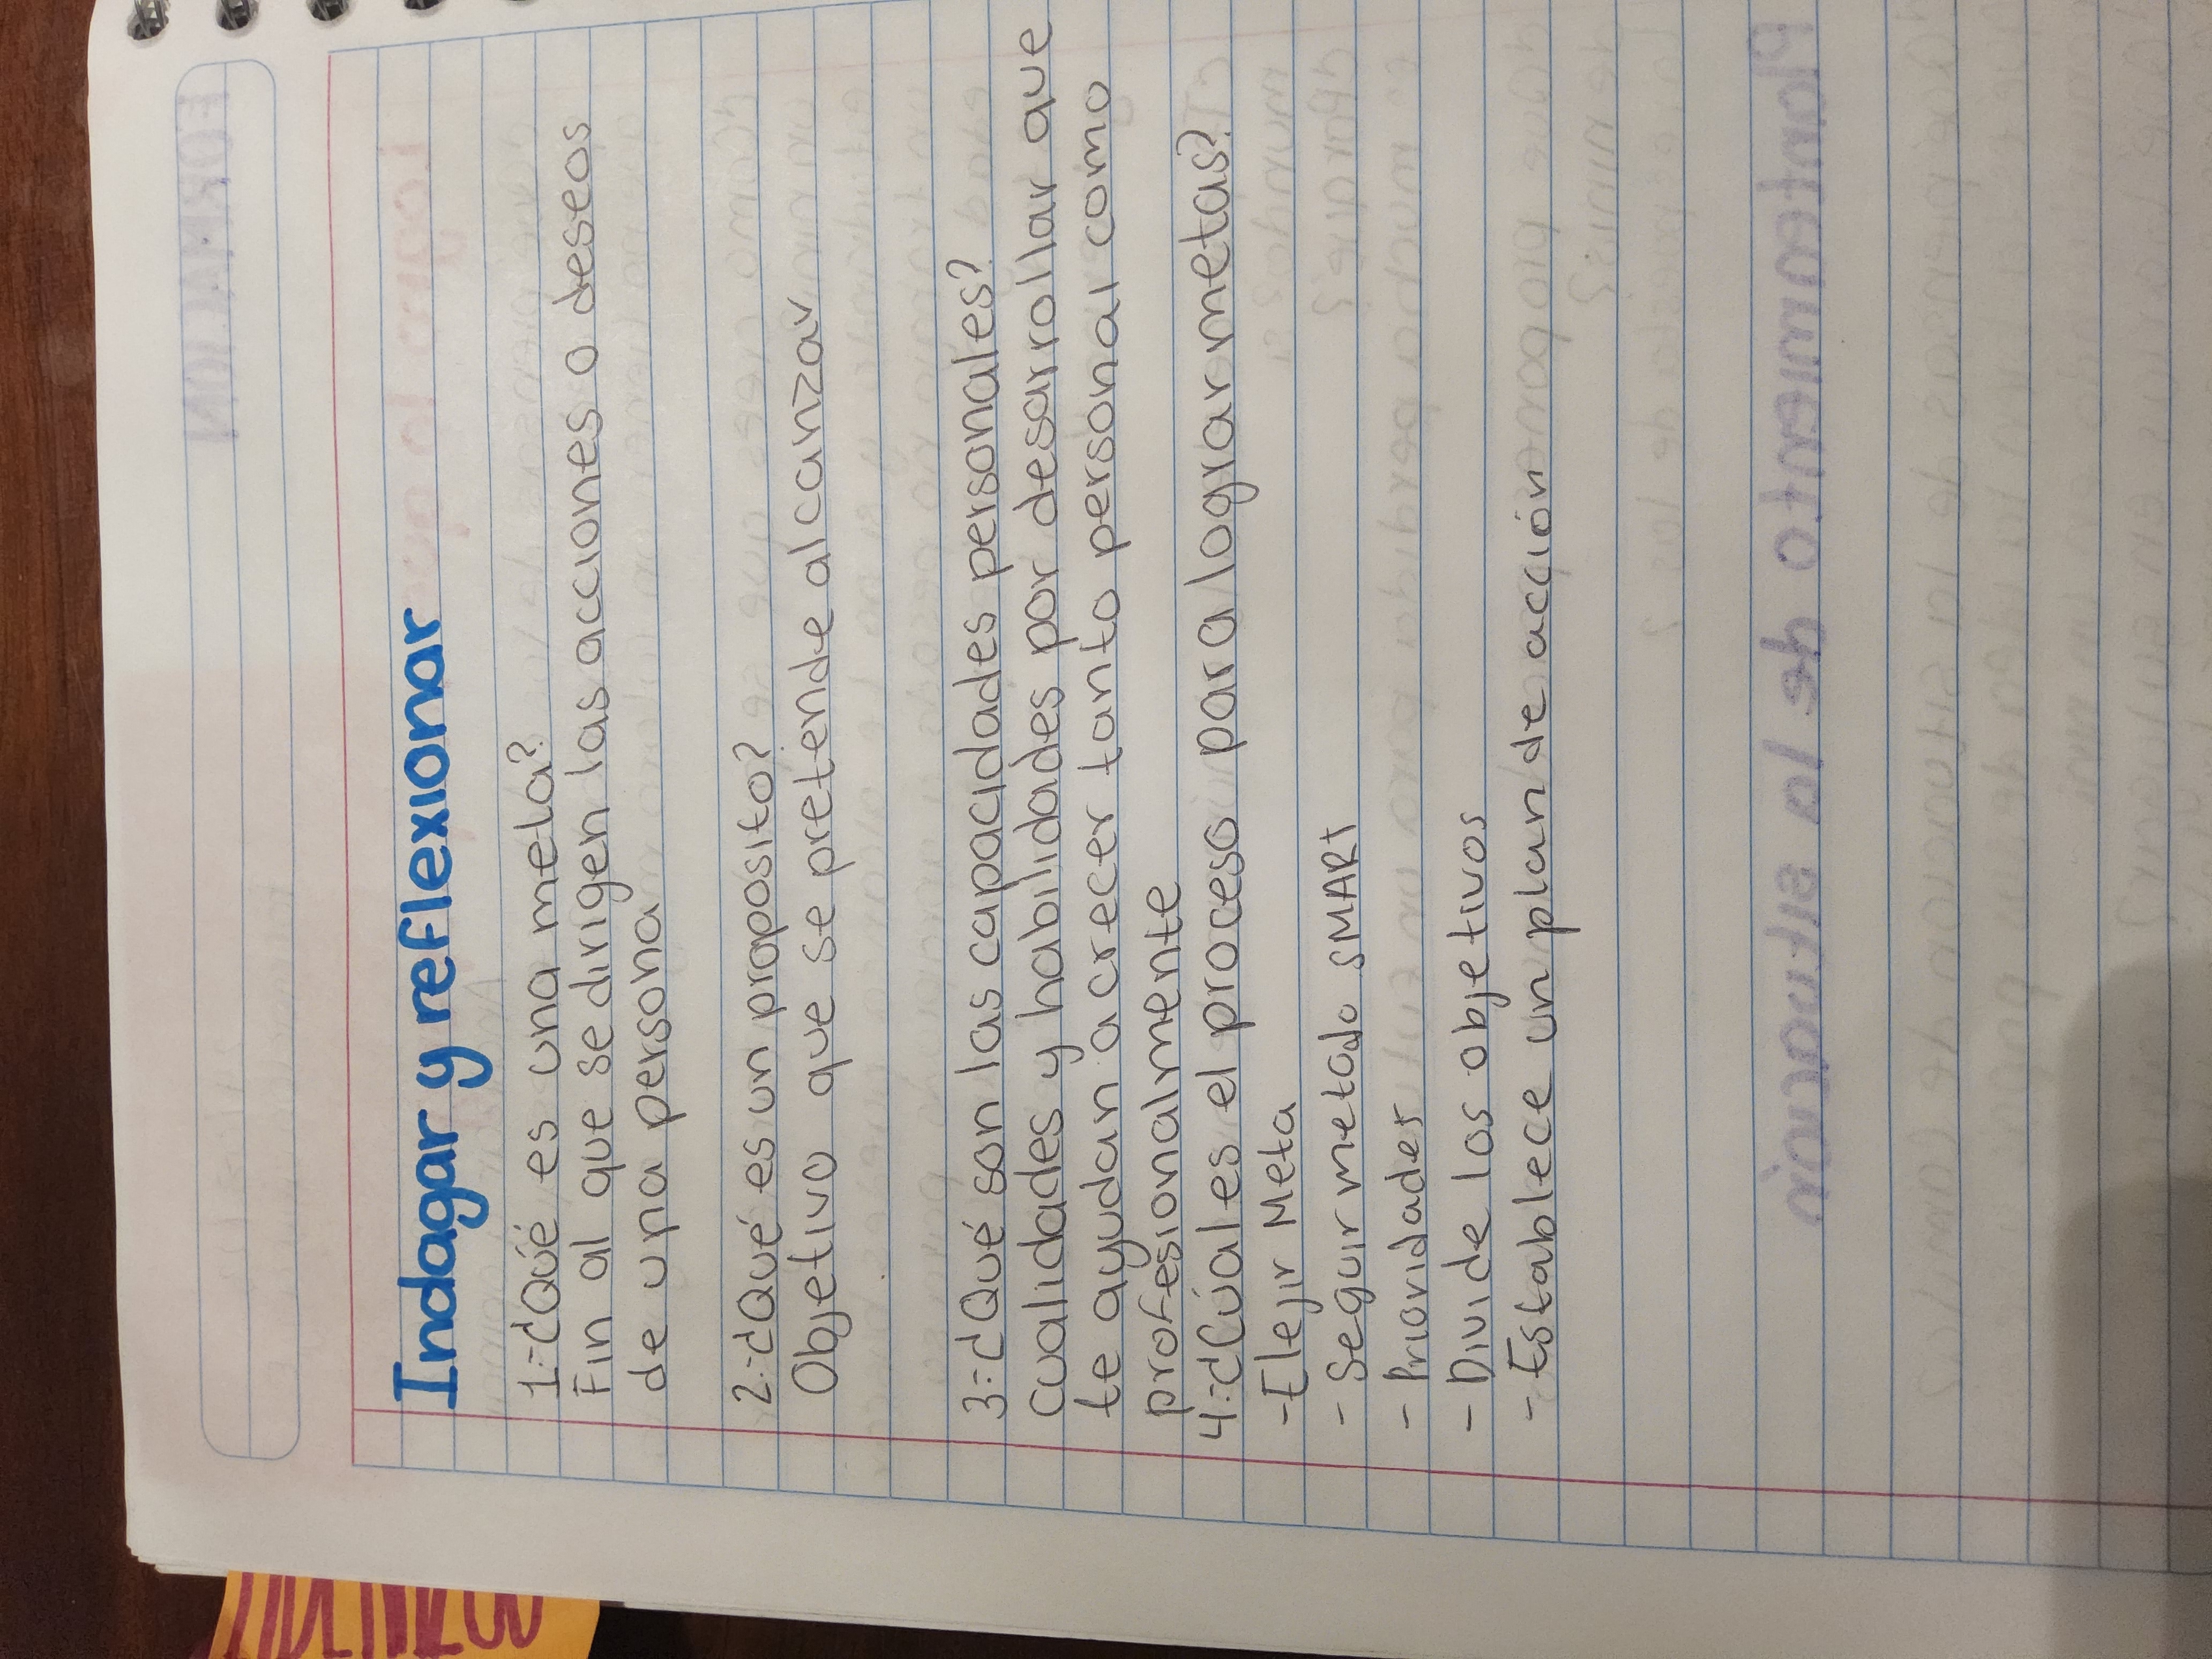 Indagar y reflexionar
1.-¿Qué es una meta?
Fin al que se dirigen las acciones o deseos
de una persona
2.-¿Qué es un proposito?
Objetivo que se pretende alcanzar
3.-¿Qué son las capacidades personales?
Cualidades y habilidades por desarrollar que
te ayudan a crecer tanto personal como
profesionalmente
4.-¿Cúal es el proceso para lograr metas?
-Elejir Meta
- Seguir metodo SMART
- Prioridades
- Divide los objetivos
- Establece un plan de acción